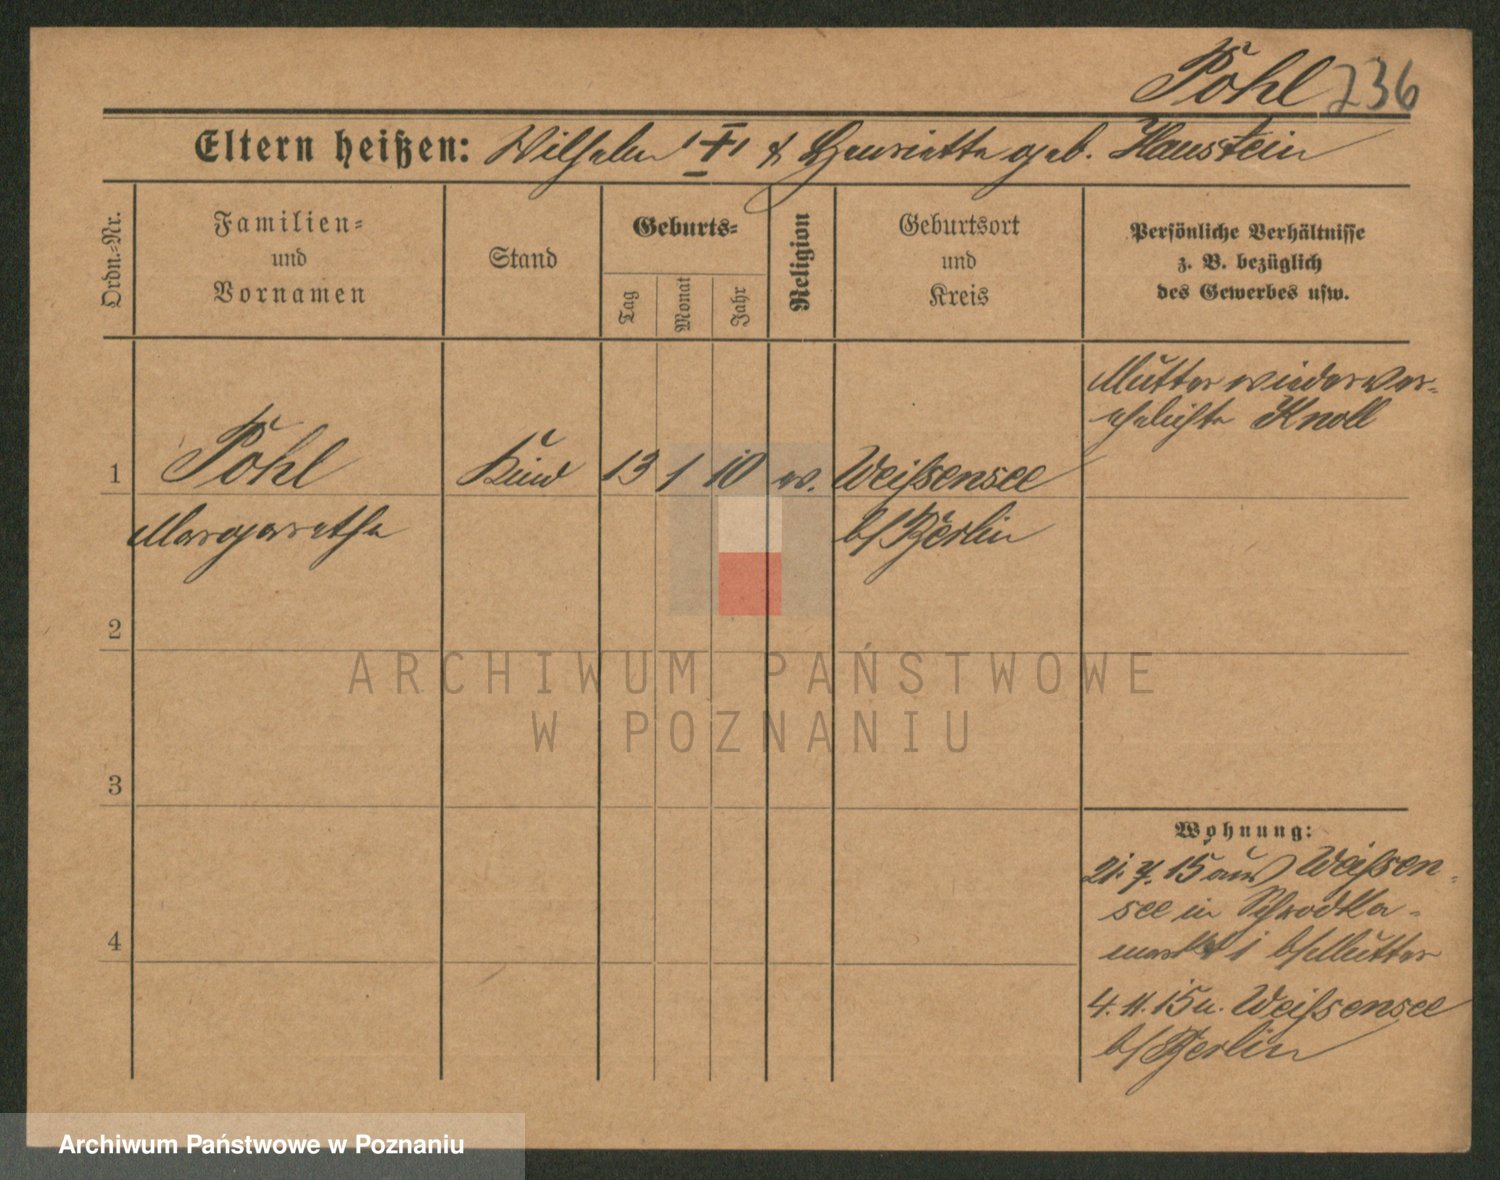 Pohl 236
Eltern heißen: Wilhelm "†" & Henriette geb. Haustein
Ordn.-Nr.
Familien-
und
Vornamen
Stand
Geburts-
Tag
Monat
Jahr
Religion
Geburtsort
und
Kreis
Persönliche Verhältnisse
z. B. bezüglich
des Gewerbes usw.
Mutter wiederver-
ehelichte Knoll
1 Pohl Kind 13 1 10 ev. Weißensee
Margarethe b/Berlin
2
3
4
Wohnung:
21. 7. 15 aus Weißen-
see in Schrodka-
markt 1 b/Mutter
4. 11. 15 n. Weißensee
b/Berlin
ARCHIWUM PAŃSTWOWE
W POZNANIU
Archiwum Państwowe w Poznaniu